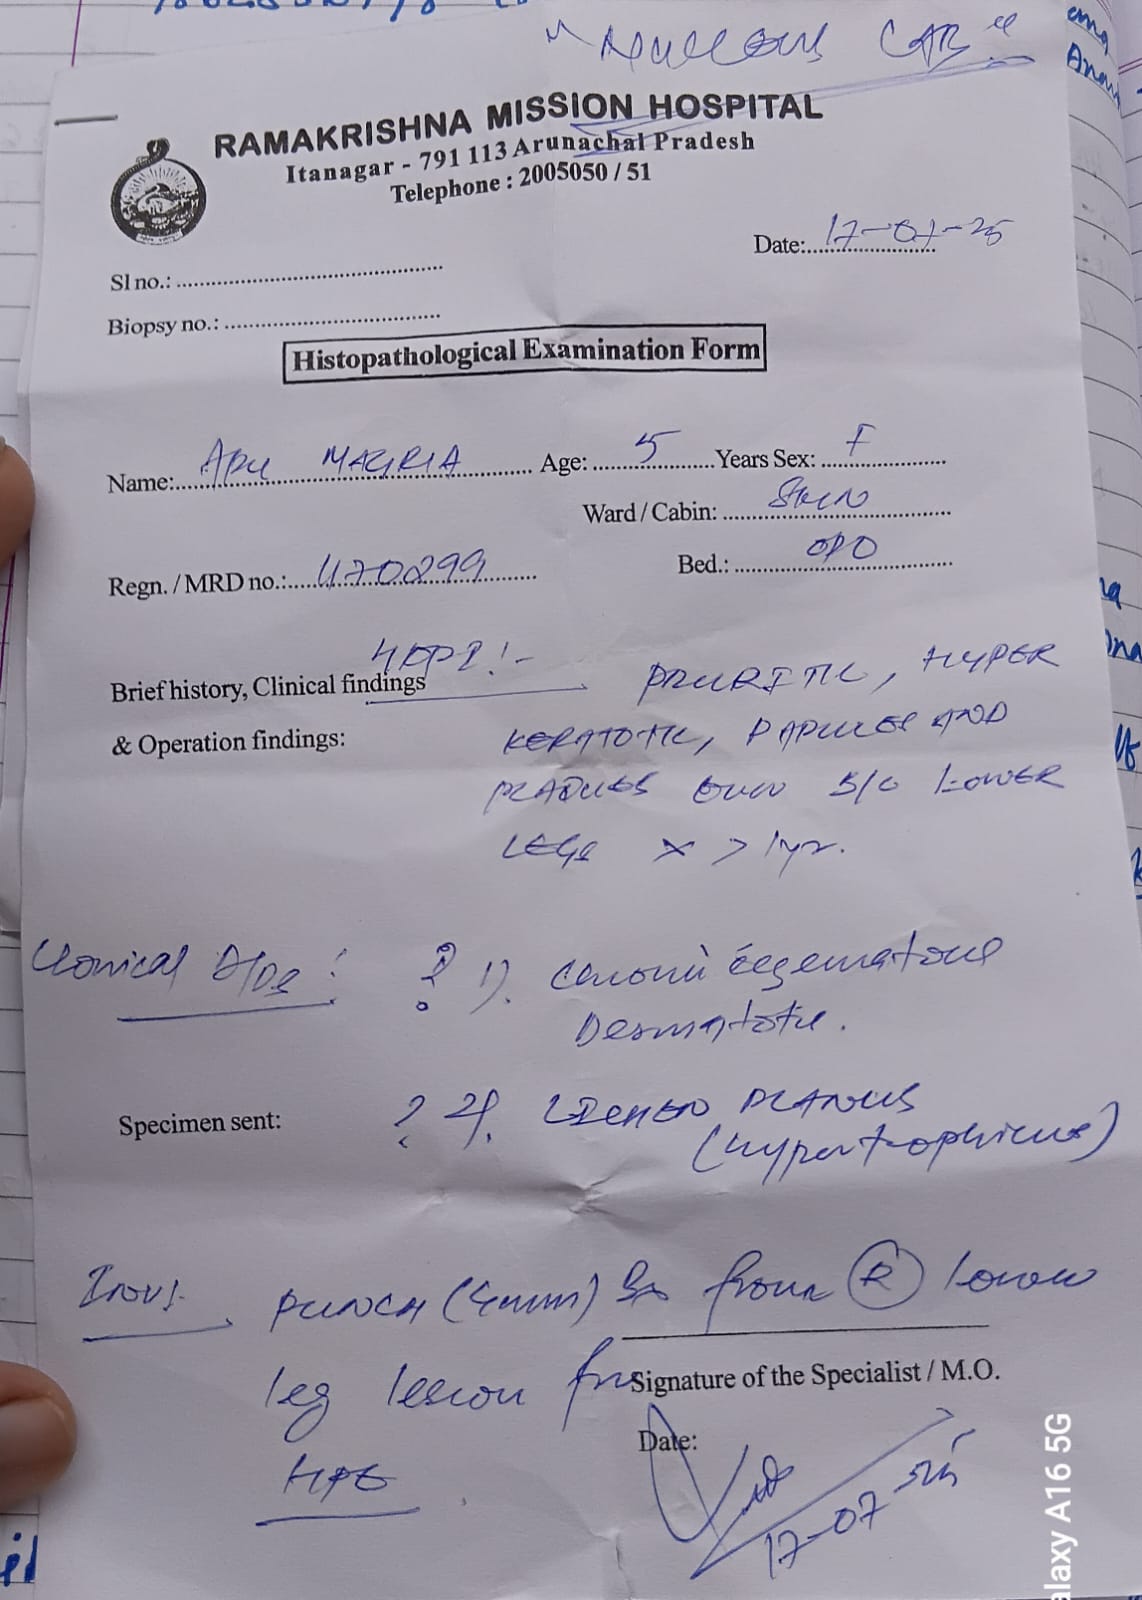 CAB"
RAMAKRISHNA MISSION HOSPITAL
Itanagar - 791 113 Arunachal Pradesh
Telephone : 2005050 / 51
Date:.. 17-07-25
Sl no.: ..............................
Biopsy no.: ..............................
Histopathological Examination Form
Name:.. Age: .. 5 .. Years Sex: .. F
Ward / Cabin: .. SKIN
Regn. / MRD no.:.. 470299 .. Bed.: .. OPD
Brief history, Clinical findings HOPI:- PRURITIC, HYPER
& Operation findings: KERATOTIC, PAPULES AND
PLAQUES over B/L LOWER
LEGS x > 1yr.
Clinical D/Ds : ? 1). Chronic eczematous
Dermatotic.
Specimen sent: ? 2). LICHEN PLANUS
(hypertrophicus)
Inv. PUNCH (4mm) Bx from (R) lower
leg lesion for
Signature of the Specialist / M.O.
HPE.
Date:
17-07
Galaxy A16 5G